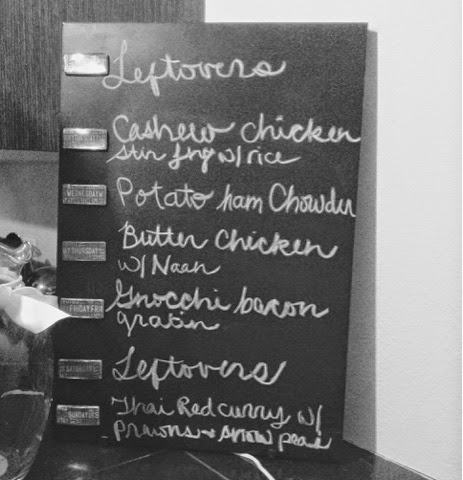 Leftovers
Cashew chicken
stir fry w/ rice
WEDNESDAY
Potato ham Chowder
THURSDAY
Butter Chicken
w/ Naan
FRIDAY
Gnocchi bacon
gratin
Leftovers
SUNDAY
Thai Red curry w/
Prawns + snow peas